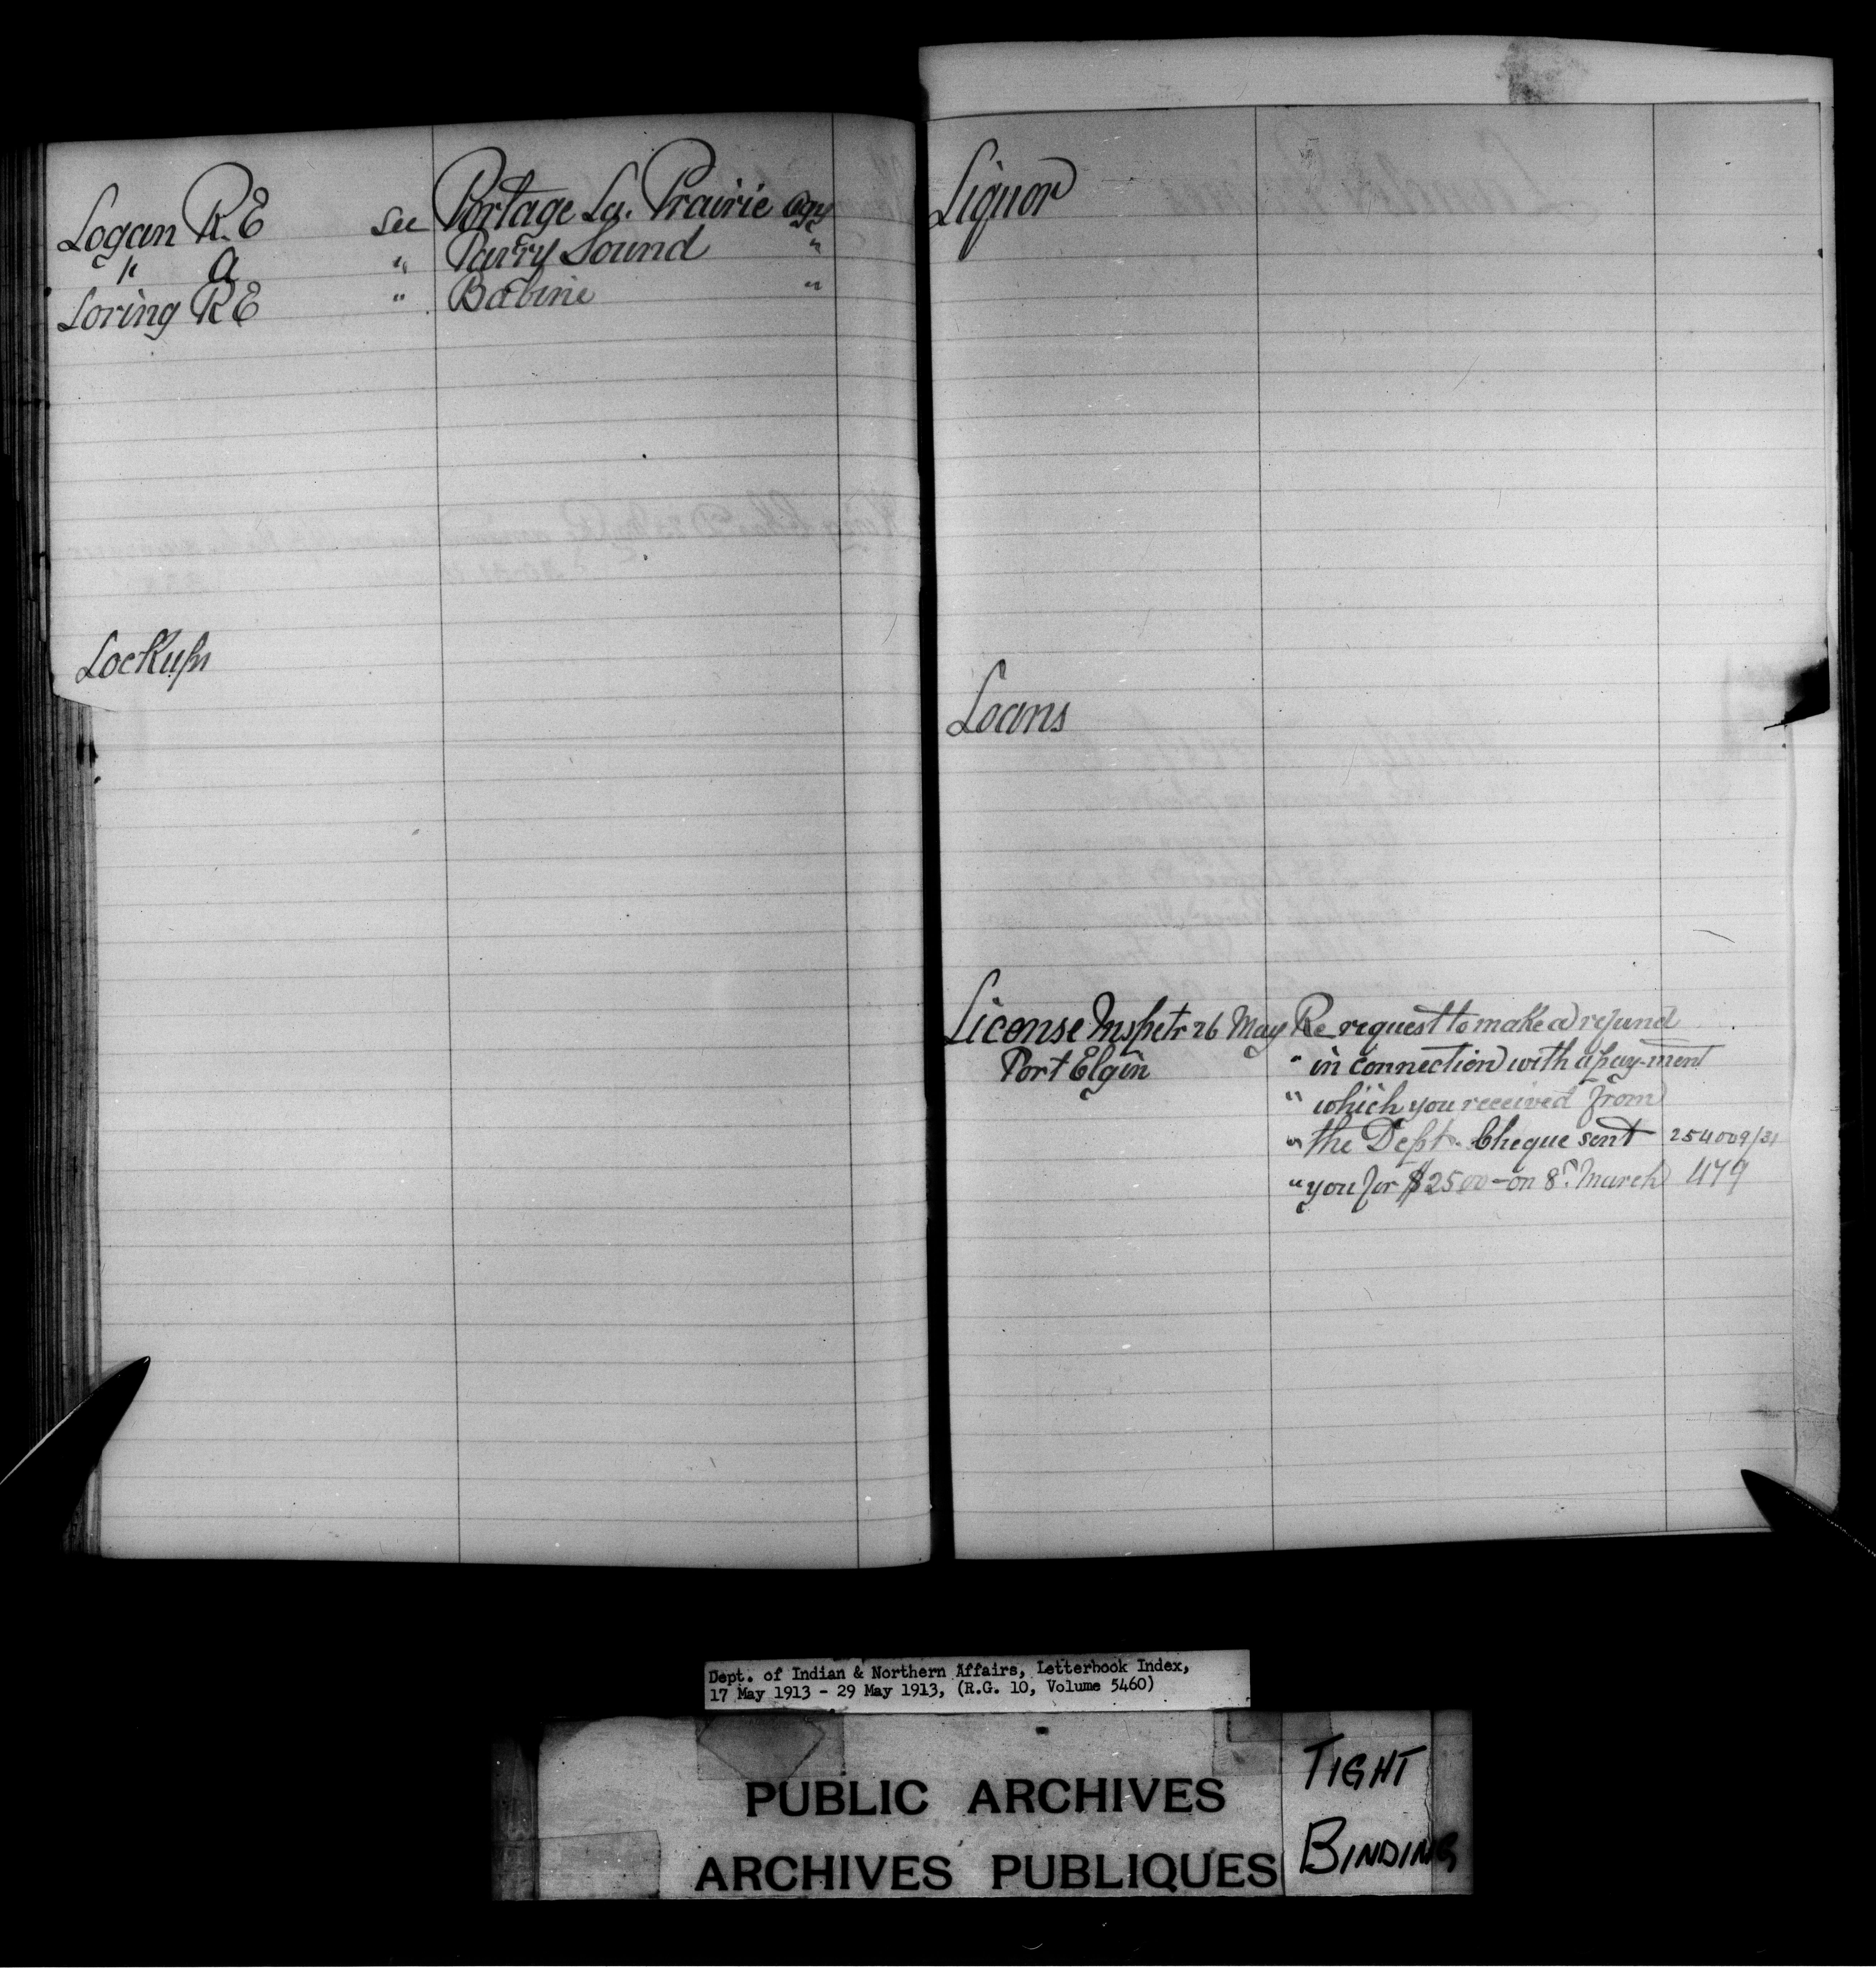 Logan R.E see Portage La. Prairie Agy
" A " Parry Sound "
Loring RE " Babine "
Lockups
Liquor
Loans
License Inspetr 26 May Re request to make a refund
Port Elgin " in connection with a pay-ment
" which you received from
" the Dept. Cheque sent 254009/31
" you for $25 00 - on 8th March 479
Dept. of Indian & Northern Affairs, Letterbook Index,
17 May 1913 - 29 May 1913, (R.G. 10, Volume 5460)
PUBLIC ARCHIVES
ARCHIVES PUBLIQUES
TIGHT
BINDING